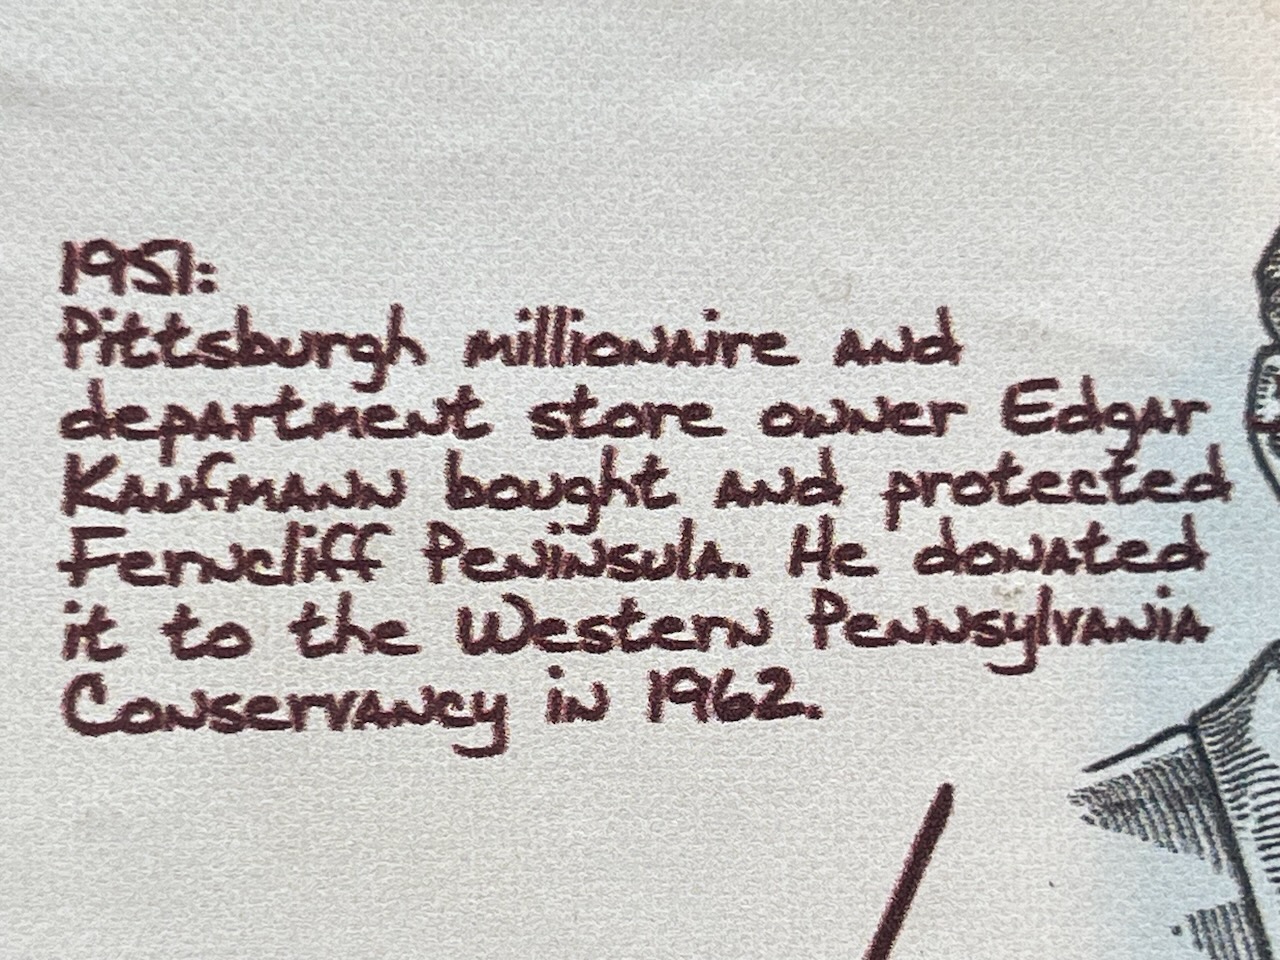 1951:
Pittsburgh millionaire and
department store owner Edgar
Kaufmann bought and protected
Ferncliff Peninsula. He donated
it to the Western Pennsylvania
Conservancy in 1962.